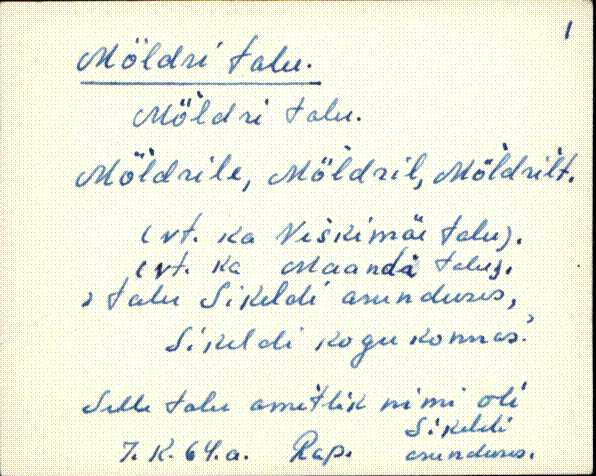 1
Möldri talu.
Möldri talu.
Möldrile, Möldril, Möldrilt.
(vt. ka Veskimäe talu).
(vt. ka Maandi talu).
, talu Sikeldi asunduses,
Sikeldi kogukonnas.
Selle talu ametlik nimi oli
7. K. 64. a. Rap. Sikeldi
asunduses.